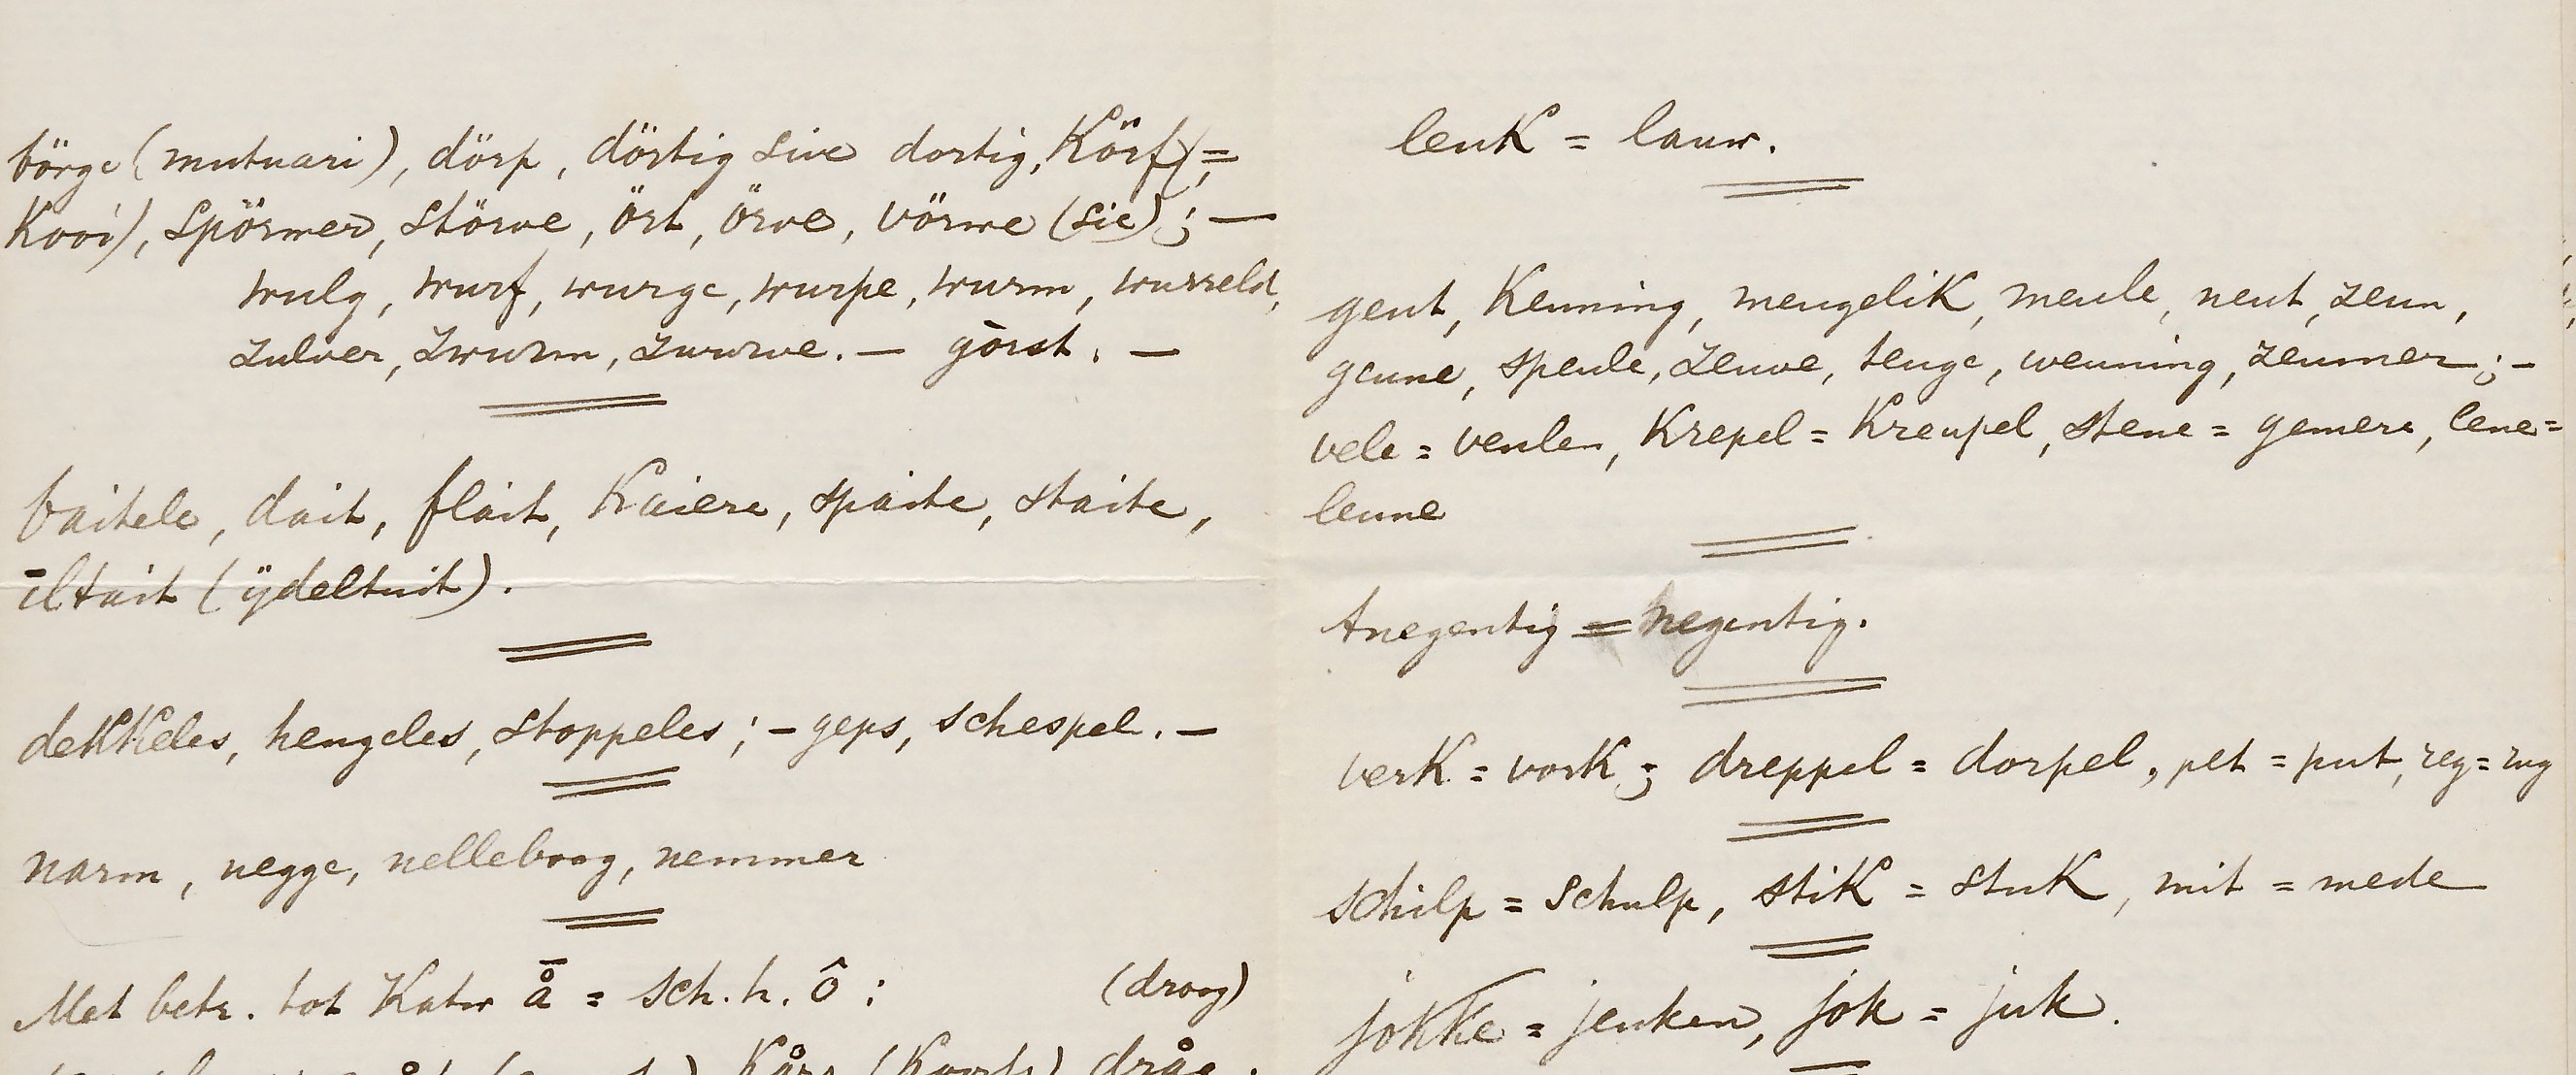 börge (mutuari), dörp, dörtig sive dortig, Körf (=
Kooi), spörmer, störve, ört, örve, vörwe (sic); —
wulg, wurf, wurge, wurpe, wurm, wurreld,
zulver, zwurm, zwurve. — gòrst. —
baitele, dait, flait, Kaiere, spaite, staite,
īltait (ijdeltuit).
deKKeles, hengeles, stoppeles; – geps, schespel. —
narm, negge, nelleboog, nemmer
Met betr. tot Katw å̄ = sch. h. ô : (droog)
Kårs (Koorts) dråg.
leuK = lauw.
geut, Keuning, meugeliK, meule, neut, zeun,
geune, speule, zeuve, teuge, weuning, zeumer; –
vele = veulen, Krepel = Kreupel, stene = gemere, lene =
leune
tnegentig = negentig.
verK = vorK; dreppel = dorpel, pet = put, reg = rug
schilp = schulp, stiK = stuK, mit = mede
joKKe = jeuken, jok = juk.